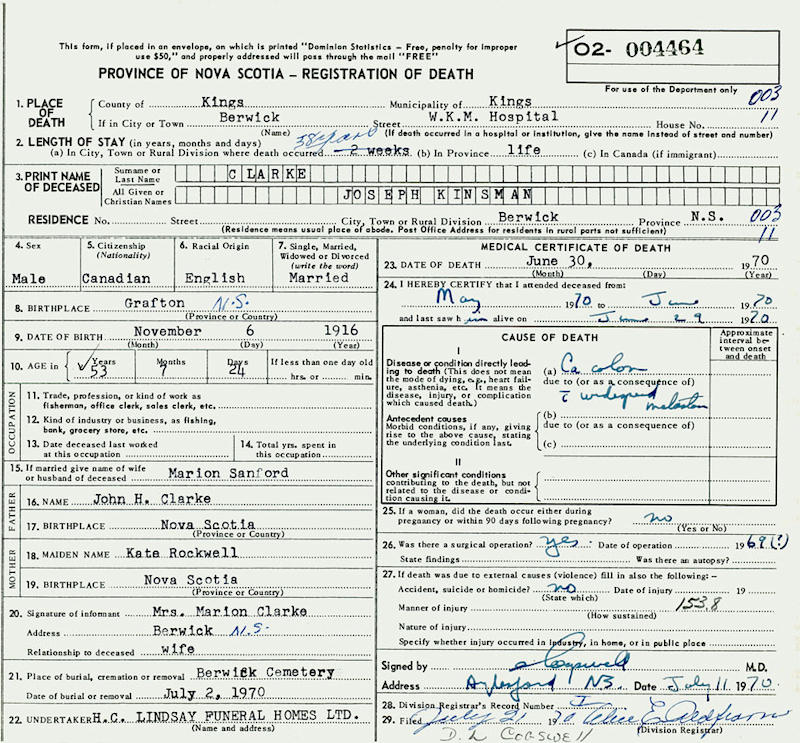 This form, if placed in an envelope, on which is printed "Dominion Statistics — Free, penalty for improper
use $50," and properly addressed will pass through the mail "FREE"
✓ O2- 004464
PROVINCE OF NOVA SCOTIA — REGISTRATION OF DEATH
For use of the Department only
003
11
1. PLACE OF DEATH
County of Kings Municipality of Kings
If in City or Town Berwick Street W.K.M. Hospital House No.
(Name) (If death occurred in a hospital or institution, give the name instead of street and number)
2. LENGTH OF STAY (in years, months and days) 38 years
(a) In City, Town or Rural Division where death occurred 2 weeks (b) In Province life (c) In Canada (if immigrant)
3. PRINT NAME OF DECEASED
Surname or Last Name CLARKE
All Given or Christian Names JOSEPH KINSMAN
RESIDENCE No. Street City, Town or Rural Division Berwick Province N.S. 003
(Residence means usual place of abode. Post Office Address for residents in rural parts not sufficient) 11
4. Sex Male
5. Citizenship (Nationality) Canadian
6. Racial Origin English
7. Single, Married, Widowed or Divorced (write the word) Married
8. BIRTHPLACE Grafton N.S.
(Province or Country)
9. DATE OF BIRTH November 6 1916
(Month) (Day) (Year)
10. AGE in ✓ Years 53 Months 7 Days 24 If less than one day old
hrs. or min.
OCCUPATION
11. Trade, profession, or kind of work as
fisherman, office clerk, sales clerk, etc.
12. Kind of industry or business, as fishing,
bank, grocery store, etc.
13. Date deceased last worked
at this occupation
14. Total yrs. spent in
this occupation
15. If married give name of wife
or husband of deceased Marion Sanford
FATHER
16. NAME John H. Clarke
17. BIRTHPLACE Nova Scotia
(Province or Country)
MOTHER
18. MAIDEN NAME Kate Rockwell
19. BIRTHPLACE Nova Scotia
(Province or Country)
20. Signature of informant Mrs. Marion Clarke
Address Berwick N.S.
Relationship to deceased wife
21. Place of burial, cremation or removal Berwick Cemetery
Date of burial or removal July 2, 1970
22. UNDERTAKER H.C. LINDSAY FUNERAL HOMES LTD.
(Name and address)
MEDICAL CERTIFICATE OF DEATH
23. DATE OF DEATH June 30, 1970
(Month) (Day) (Year)
24. I HEREBY CERTIFY that I attended deceased from:
May 1970 to June 1970
and last saw him alive on June 29 1970
CAUSE OF DEATH
Approximate interval between onset and death
I
Disease or condition directly leading
to death (This does not mean
the mode of dying, e.g., heart failure,
asthenia, etc. It means the
disease, injury, or complication
which caused death.)
(a) Ca colon
due to (or as a consequence of)
c̄ widespread
Antecedent causes
Morbid conditions, if any, giving
rise to the above cause, stating
the underlying condition last.
(b)
due to (or as a consequence of)
(c)
II
Other significant conditions
contributing to the death, but not
related to the disease or condition
causing it.
25. If a woman, did the death occur either during
pregnancy or within 90 days following pregnancy? no
(Yes or No)
26. Was there a surgical operation? yes. Date of operation 1969(?)
State findings Was there an autopsy?
27. If death was due to external causes (violence) fill in also the following:—
Accident, suicide or homicide? no Date of injury 19
(State which)
Manner of injury 153.8
(How sustained)
Nature of injury
Specify whether injury occurred in industry, in home, or in public place
Signed by Cogswell M.D.
Address Aylesford N.S. Date July 11 1970.
28. Division Registrar's Record Number
29. Filed July 21 1970
(Division Registrar)
D. L COGSWELL